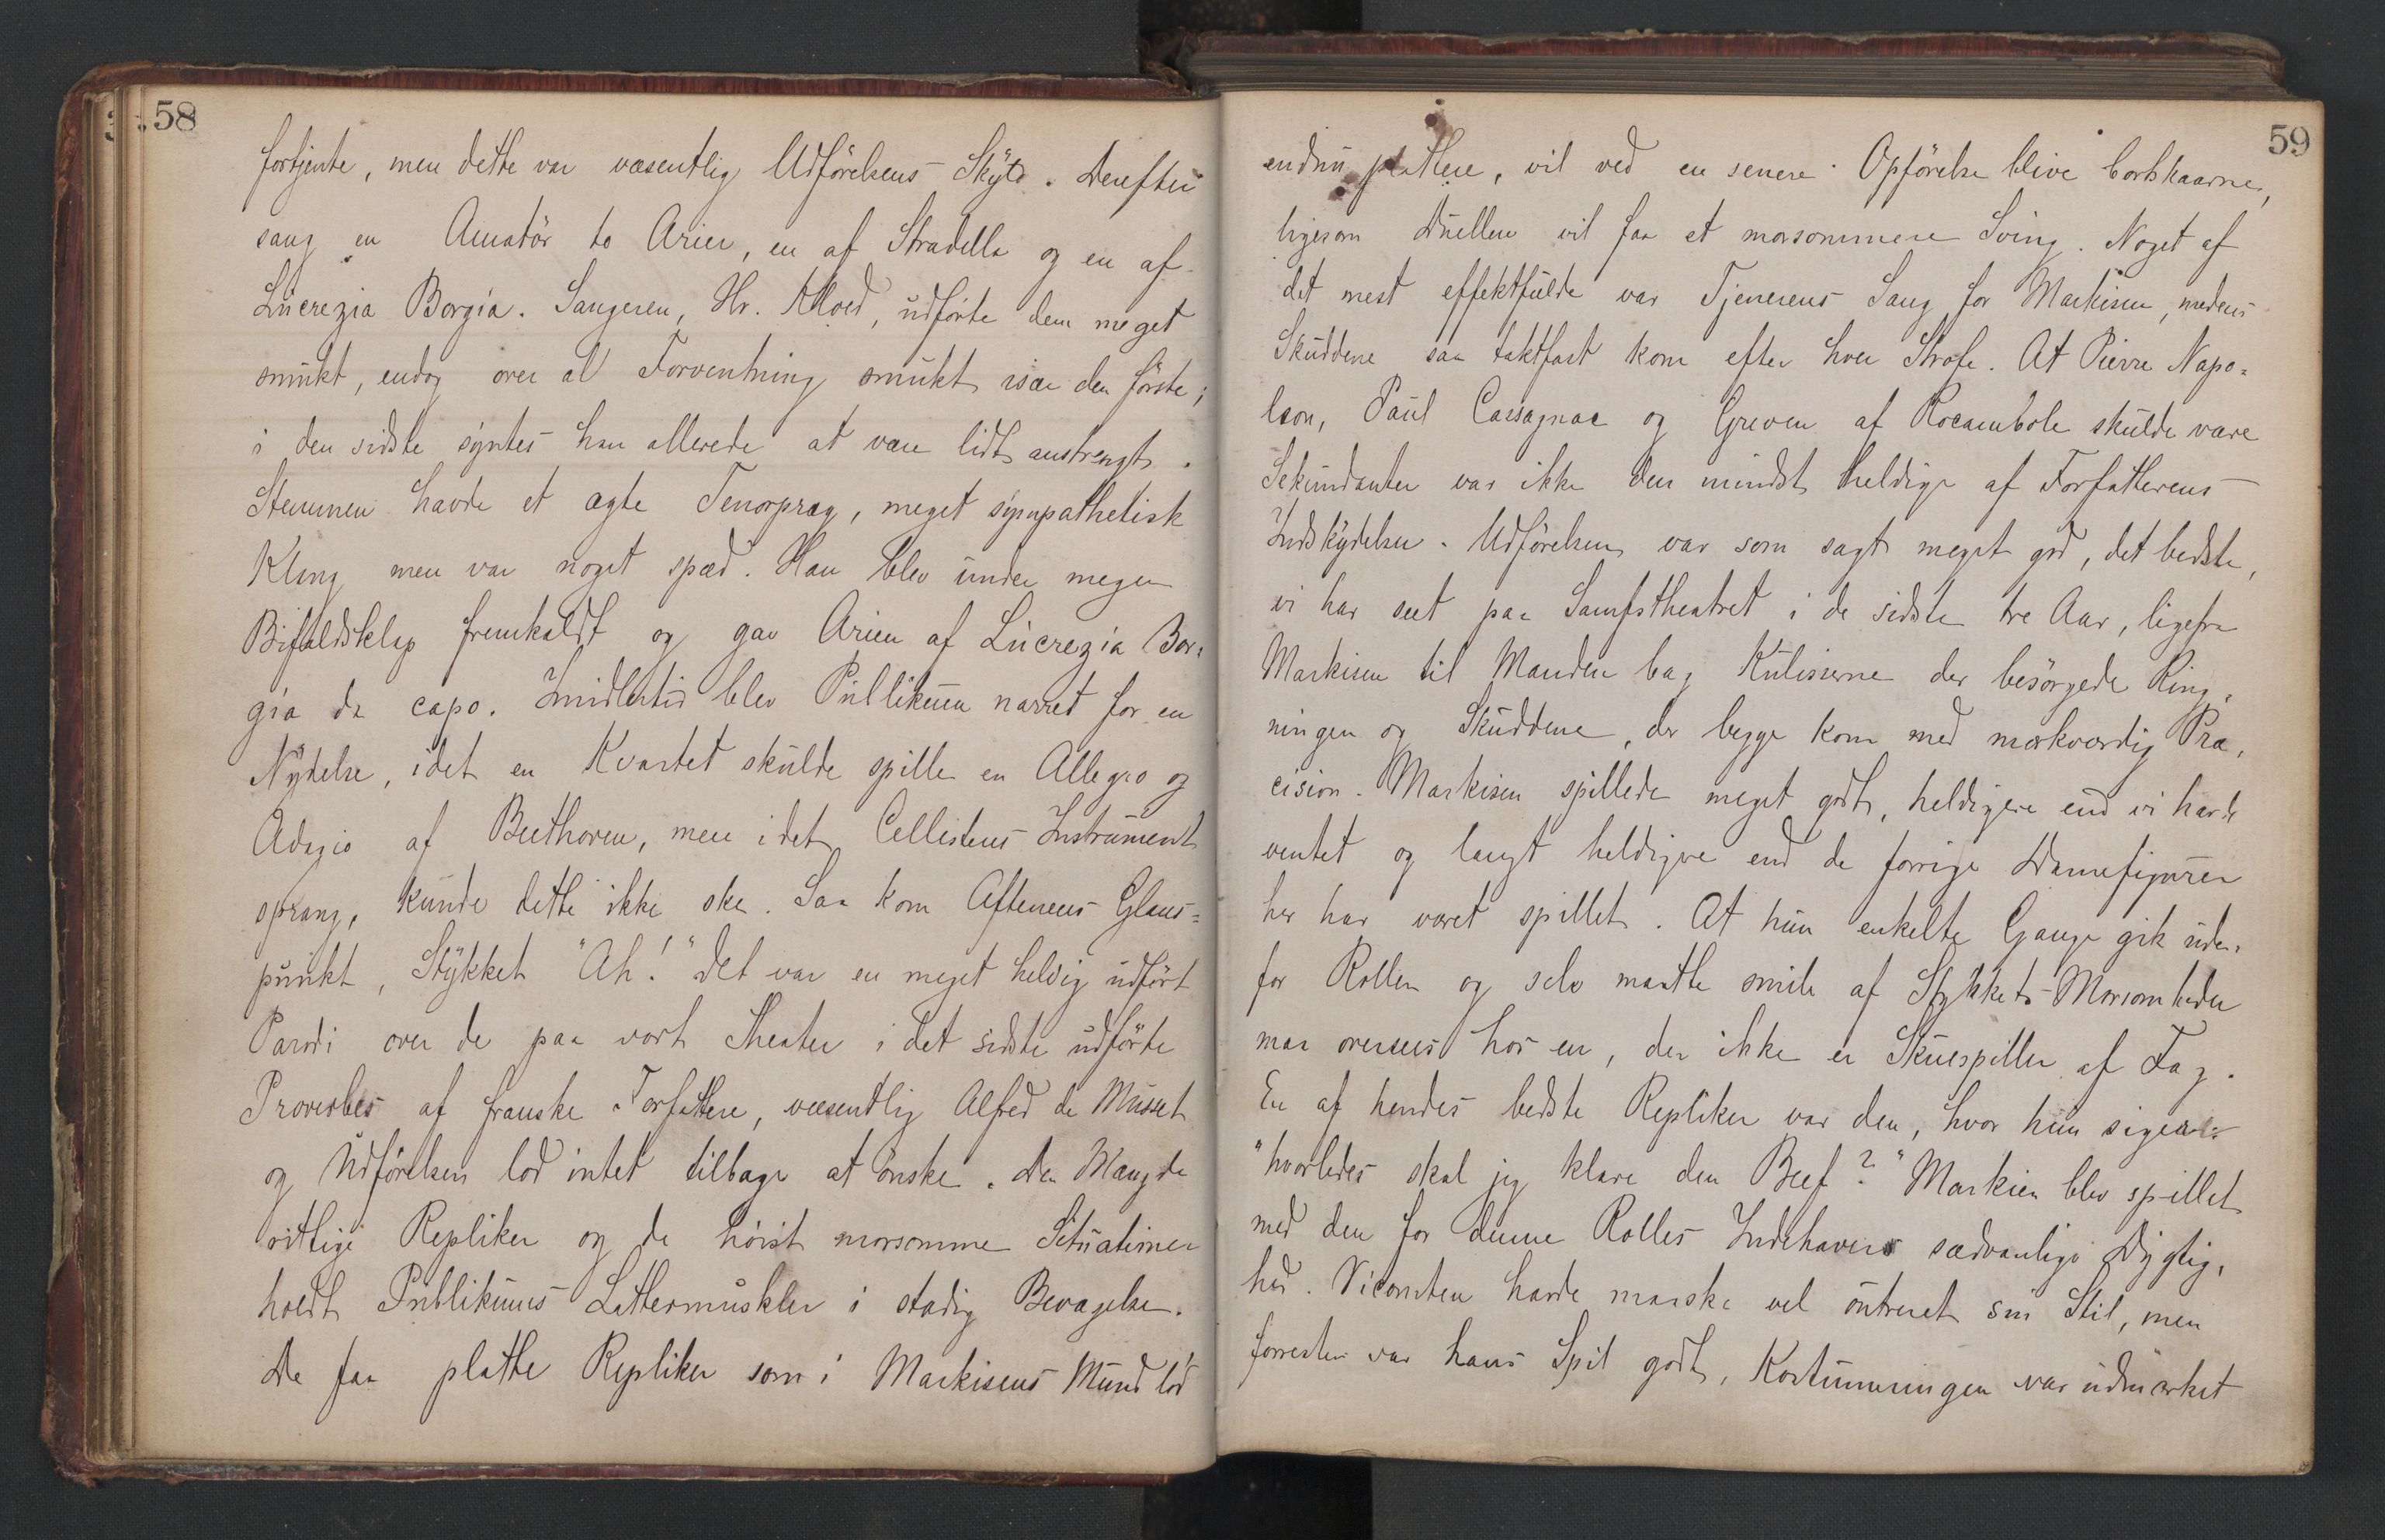 58
fortjente, men dette var væsentlig Udförelsens Skyld. Derefter
sang en Amatör to Arier, en af Stradella og en af
Lucrezia Borgia. Sangeren, Hr. Kloed, udförte dem meget
smukt, endog over al Forventning smukt især den förste;
i den sidste syntes han allerede at være lidt anstrengt.
Stemmen havde et ægte Tenorpræg, meget sympathetisk
Klang men var noget spæd. Han blev under megen
Bifaldsklap fremkaldt og gav Arien af Lucrezia Bor-
gia da capo. Imidlertid blev Publikum narret for en
Nydelse, idet en Kvartet skulde spille en Allegro og
Adagio af Beethoven, men idet Cellistens Instrument
sprang, kunde dette ikke ske. Saa kom Aftenens Glans=
punkt, Stykket "Ah!" Det var en meget heldig udfört
Parodi over de paa vort Theater i det sidste udförte
Proverbes af franske Forfattere, væsentlig Alfred de Musset
og Udförelsen lod intet tilbage at önske. Den Mængde
vittige Repliker og de höist morsomme Situationer
holdt Publikums Lattermuskler i stadig Bevægelse.
De faa platte Repliker som i Markisens Mund lød
59
endnu plattere, vil ved en senere Opförelse blive bortskaarne,
ligesom Duellen vil faa et morsommere Sving. Noget af
det mest effektfulde var Tjenerens Sang for Markisen, medens
Skuddene saa taktfast kom efter hver Strofe. At Pierre Napo=
leon, Paul Cassagnac og Greven af Rocambole skulde være
Sekundanter var ikke den mindst heldige af Forfatterens
Indskydelser. Udförelsen var som sagt meget god, det bedste,
vi har seet paa Samfstheatret i de sidste tre Aar, ligefra
Markisen til Manden bag Kulisserne der besörgede Ring-
ningen og Skuddene, der begge kom med mærkværdig Præ-
cision. Markisen spillede meget godt, heldigere end vi havde
ventet og langt heldigere end de forrige Damefigurer
her har været spillet. At hun enkelte Gange gik uden-
for Rollen og selv maatte smile af Stykkets Morsomheder
maa oversees hos en, der ikke er Skuespiller af Fag.
En af hendes bedste Repliker var den, hvor hun siger
"hvorledes skal jeg klare den Beef?" Markien blev spillet
med den for denne Rolles Indehavers sædvanlige Dygtig-
hed. Vicomten havde maaske vel outreret sin Stil, men
forresten var hans Spil godt, Kostumeringen var udmærket